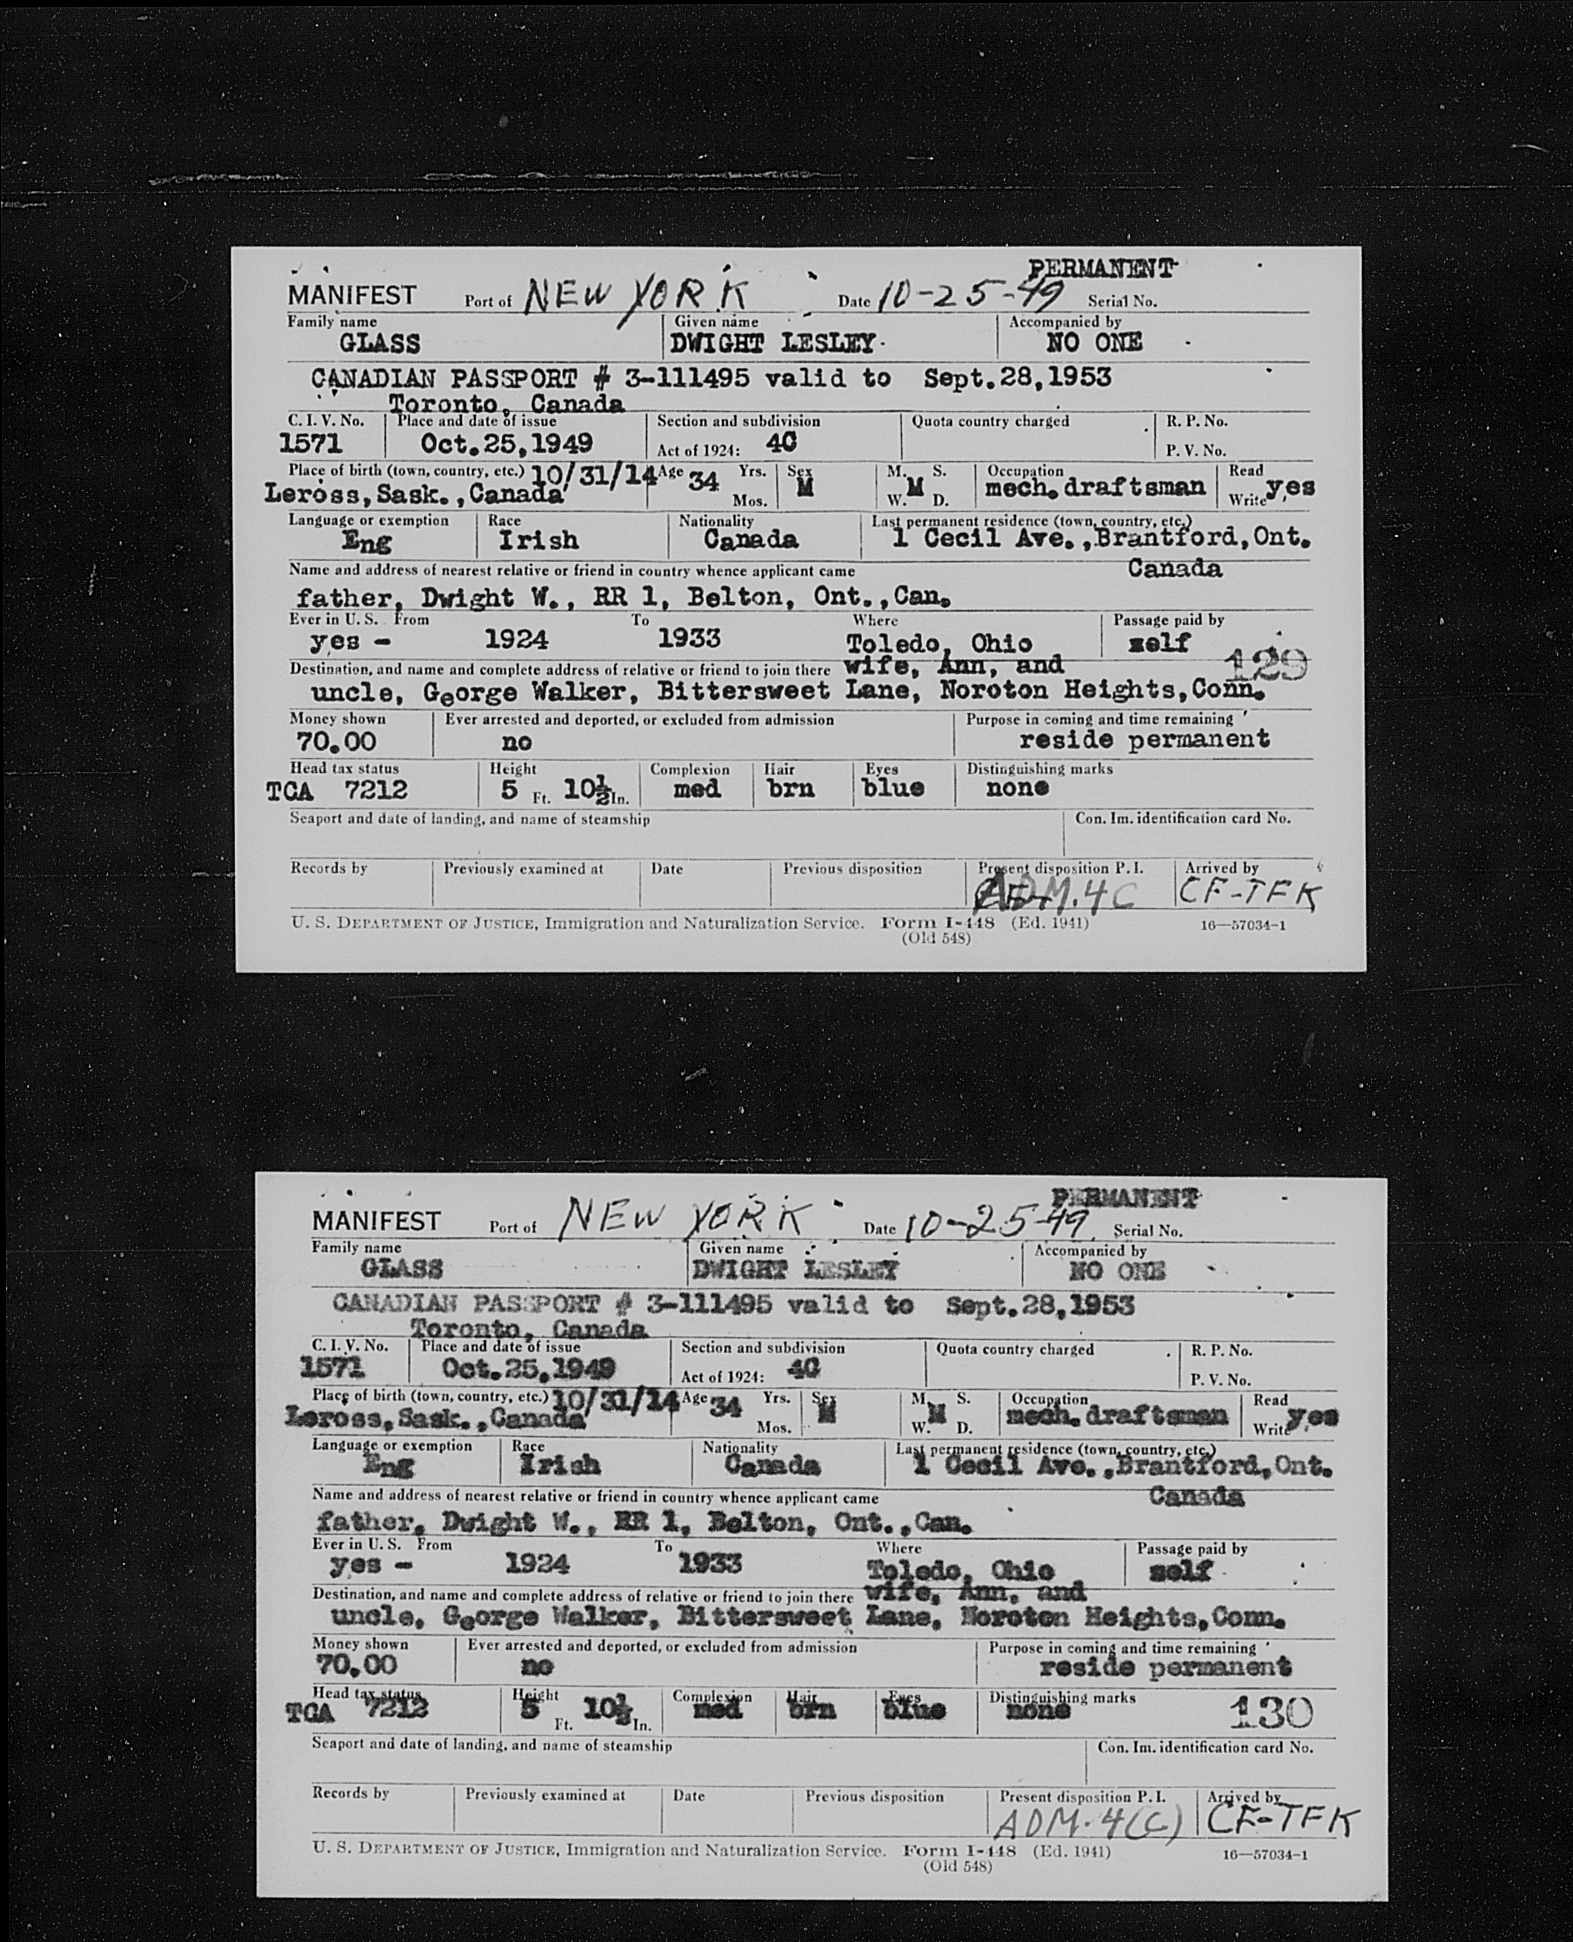 PERMANENT
MANIFEST Port of NEW YORK Date 10-25-49 Serial No.
Family name Given name Accompanied by
GLASS DWIGHT LESLEY NO ONE
CANADIAN PASSPORT # 3-111495 valid to Sept.28,1953
Toronto, Canada
C. I. V. No. Place and date of issue Section and subdivision Quota country charged R. P. No.
1571 Oct.25,1949 Act of 1924: 4C P. V. No.
Place of birth (town, country, etc.) 10/31/14 Age 34 Yrs. Sex M. S. Occupation Read
Leross,Sask.,Canada Mos. M W. M D. mech.draftsman Write yes
Language or exemption Race Nationality Last permanent residence (town, country, etc.)
Eng Irish Canada 1 Cecil Ave.,Brantford,Ont.
Name and address of nearest relative or friend in country whence applicant came Canada
father, Dwight W., RR 1, Belton, Ont.,Can.
Ever in U. S. From To Where Passage paid by
yes - 1924 1933 Toledo, Ohio self
Destination, and name and complete address of relative or friend to join there wife, Ann, and 129
uncle, George Walker, Bittersweet Lane, Noroton Heights,Conn.
Money shown Ever arrested and deported, or excluded from admission Purpose in coming and time remaining
70.00 no reside permanent
Head tax status Height Complexion Hair Eyes Distinguishing marks
TCA 7212 5 Ft. 10½ In. med brn blue none
Seaport and date of landing, and name of steamship Con. Im. identification card No.
Records by Previously examined at Date Previous disposition Present disposition P. I. Arrived by
ADM. 4C CF-TFK
U. S. DEPARTMENT OF JUSTICE, Immigration and Naturalization Service. Form I-448 (Ed. 1941) 16—57034-1
(Old 548)
PERMANENT
MANIFEST Port of NEW YORK Date 10-25-49 Serial No.
Family name Given name Accompanied by
GLASS DWIGHT LESLEY NO ONE
CANADIAN PASSPORT # 3-111495 valid to Sept.28,1953
Toronto, Canada
C. I. V. No. Place and date of issue Section and subdivision Quota country charged R. P. No.
1571 Oct.25,1949 Act of 1924: 4C P. V. No.
Place of birth (town, country, etc.) 10/31/14 Age 34 Yrs. Sex M. S. Occupation Read
Leross,Sask.,Canada Mos. M W. M D. mech.draftsman Write yes
Language or exemption Race Nationality Last permanent residence (town, country, etc.)
Eng Irish Canada 1 Cecil Ave.,Brantford,Ont.
Name and address of nearest relative or friend in country whence applicant came Canada
father, Dwight W., RR 1, Belton, Ont.,Can.
Ever in U. S. From To Where Passage paid by
yes - 1924 1933 Toledo, Ohio self
Destination, and name and complete address of relative or friend to join there wife, Ann, and
uncle, George Walker, Bittersweet Lane, Noroton Heights,Conn.
Money shown Ever arrested and deported, or excluded from admission Purpose in coming and time remaining
70.00 no reside permanent
Head tax status Height Complexion Hair Eyes Distinguishing marks
TCA 7212 5 Ft. 10½ In. med brn blue none 130
Seaport and date of landing, and name of steamship Con. Im. identification card No.
Records by Previously examined at Date Previous disposition Present disposition P. I. Arrived by
ADM. 4(C) CF-TFK
U. S. DEPARTMENT OF JUSTICE, Immigration and Naturalization Service. Form I-448 (Ed. 1941) 16—57034-1
(Old 548)